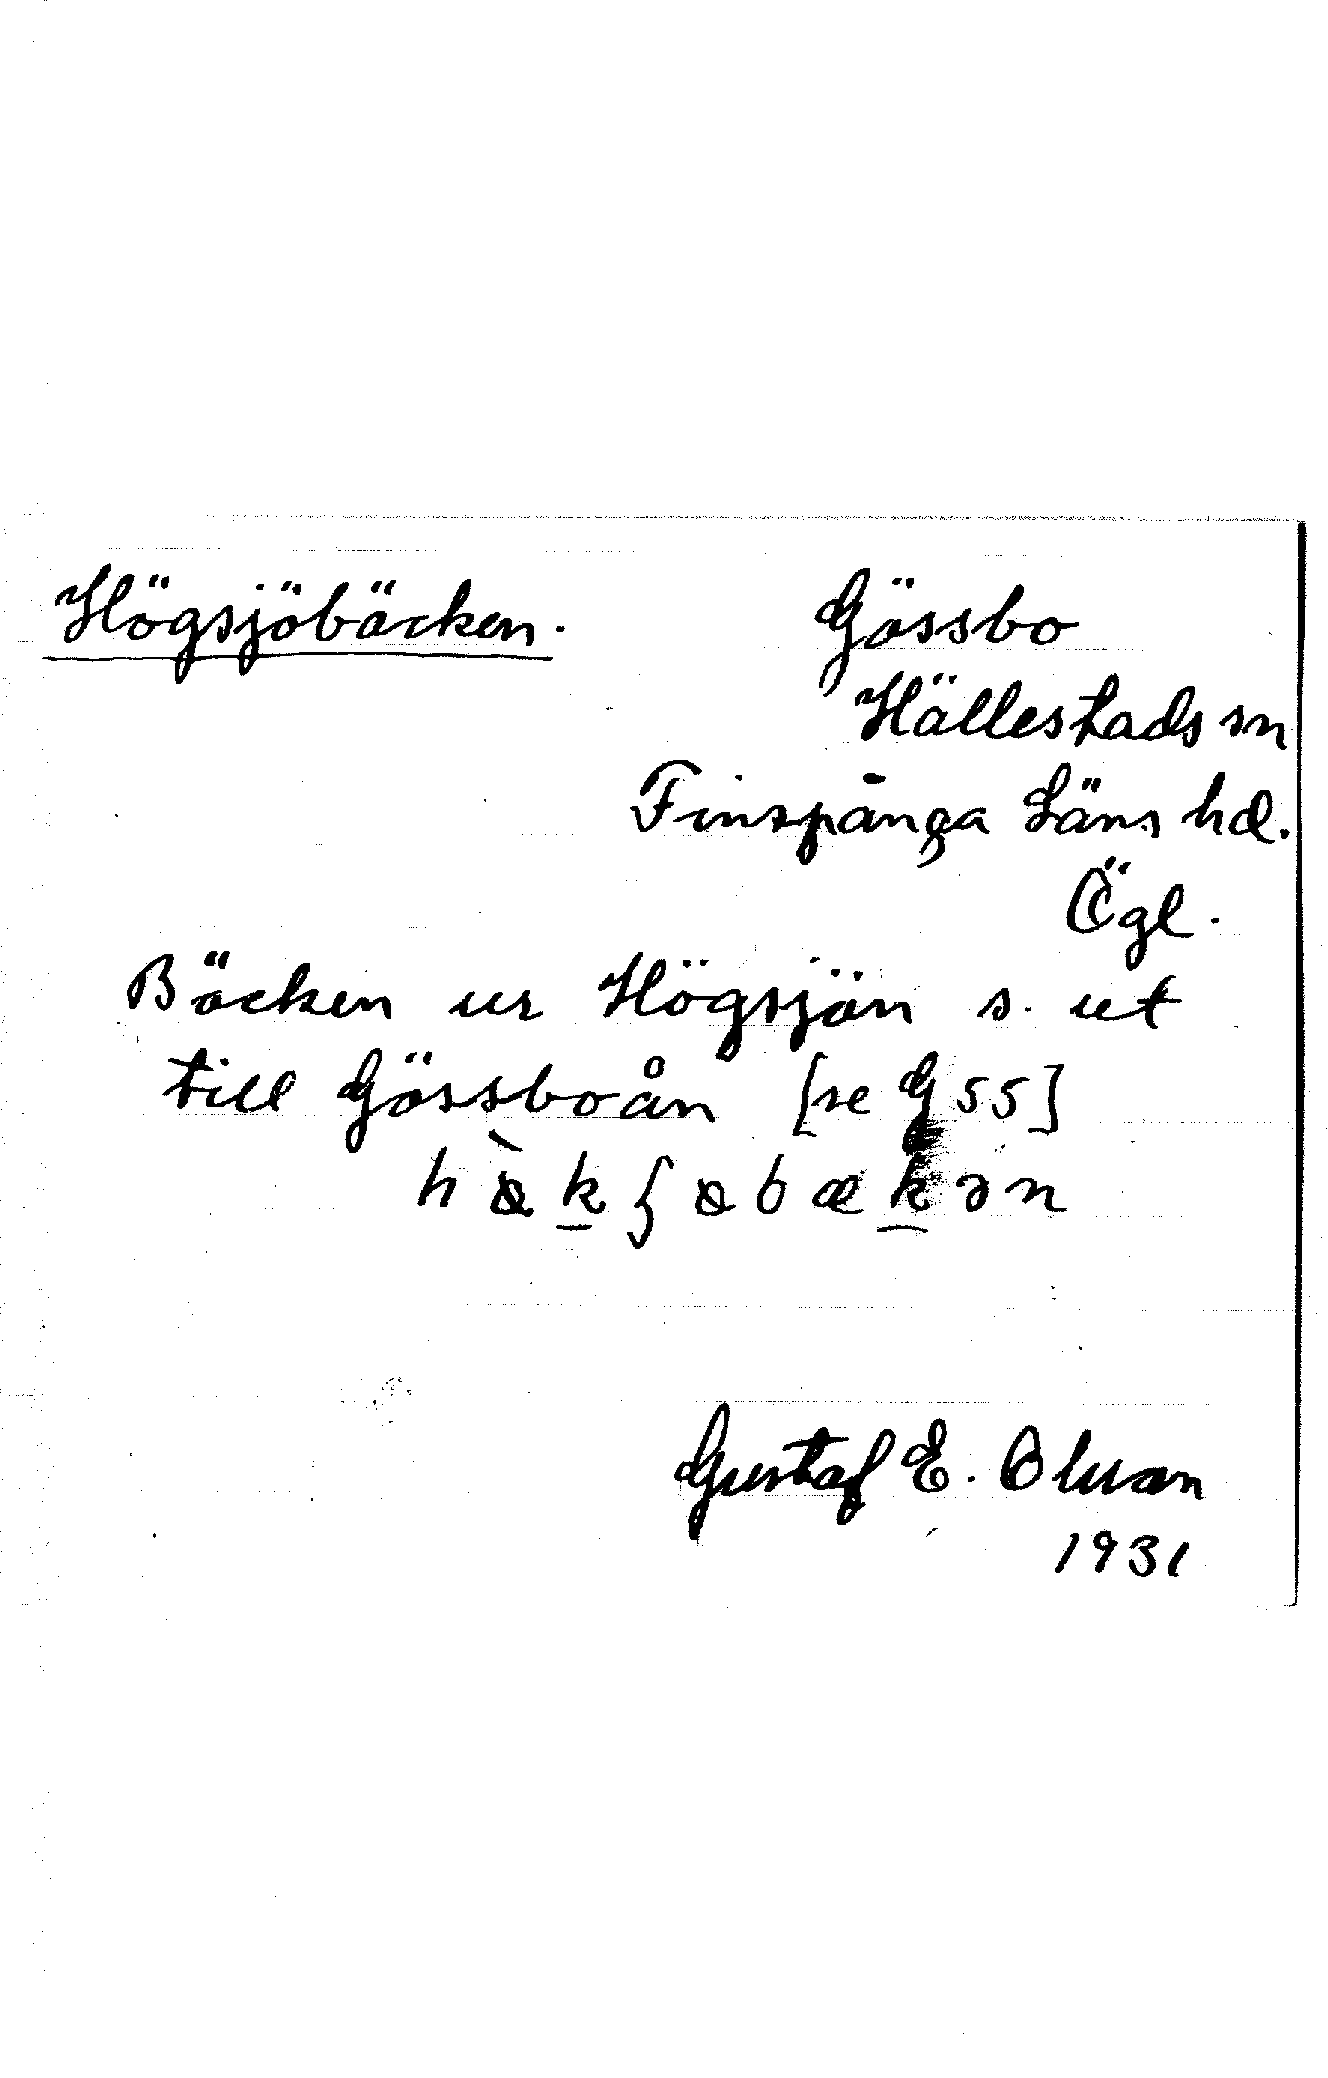 Högsjöbäcken.
Gössbo
Hällestads sn
Finspånga Läns hd.
Ögl.
Bäcken ur Högsjön s. ut
till Gössboån [se G 55]
Gustaf E. Olsson
1931